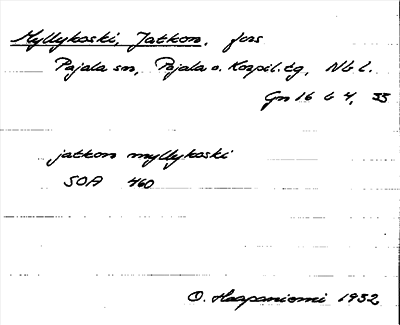 Myllykoski, Jatkon, fors
Pajala sn, Pajala o. Korpil. tg, Nb l.
Gn 16 b 4, 33
jatkon myllykoski
SOA 460
O. Haapaniemi 1932